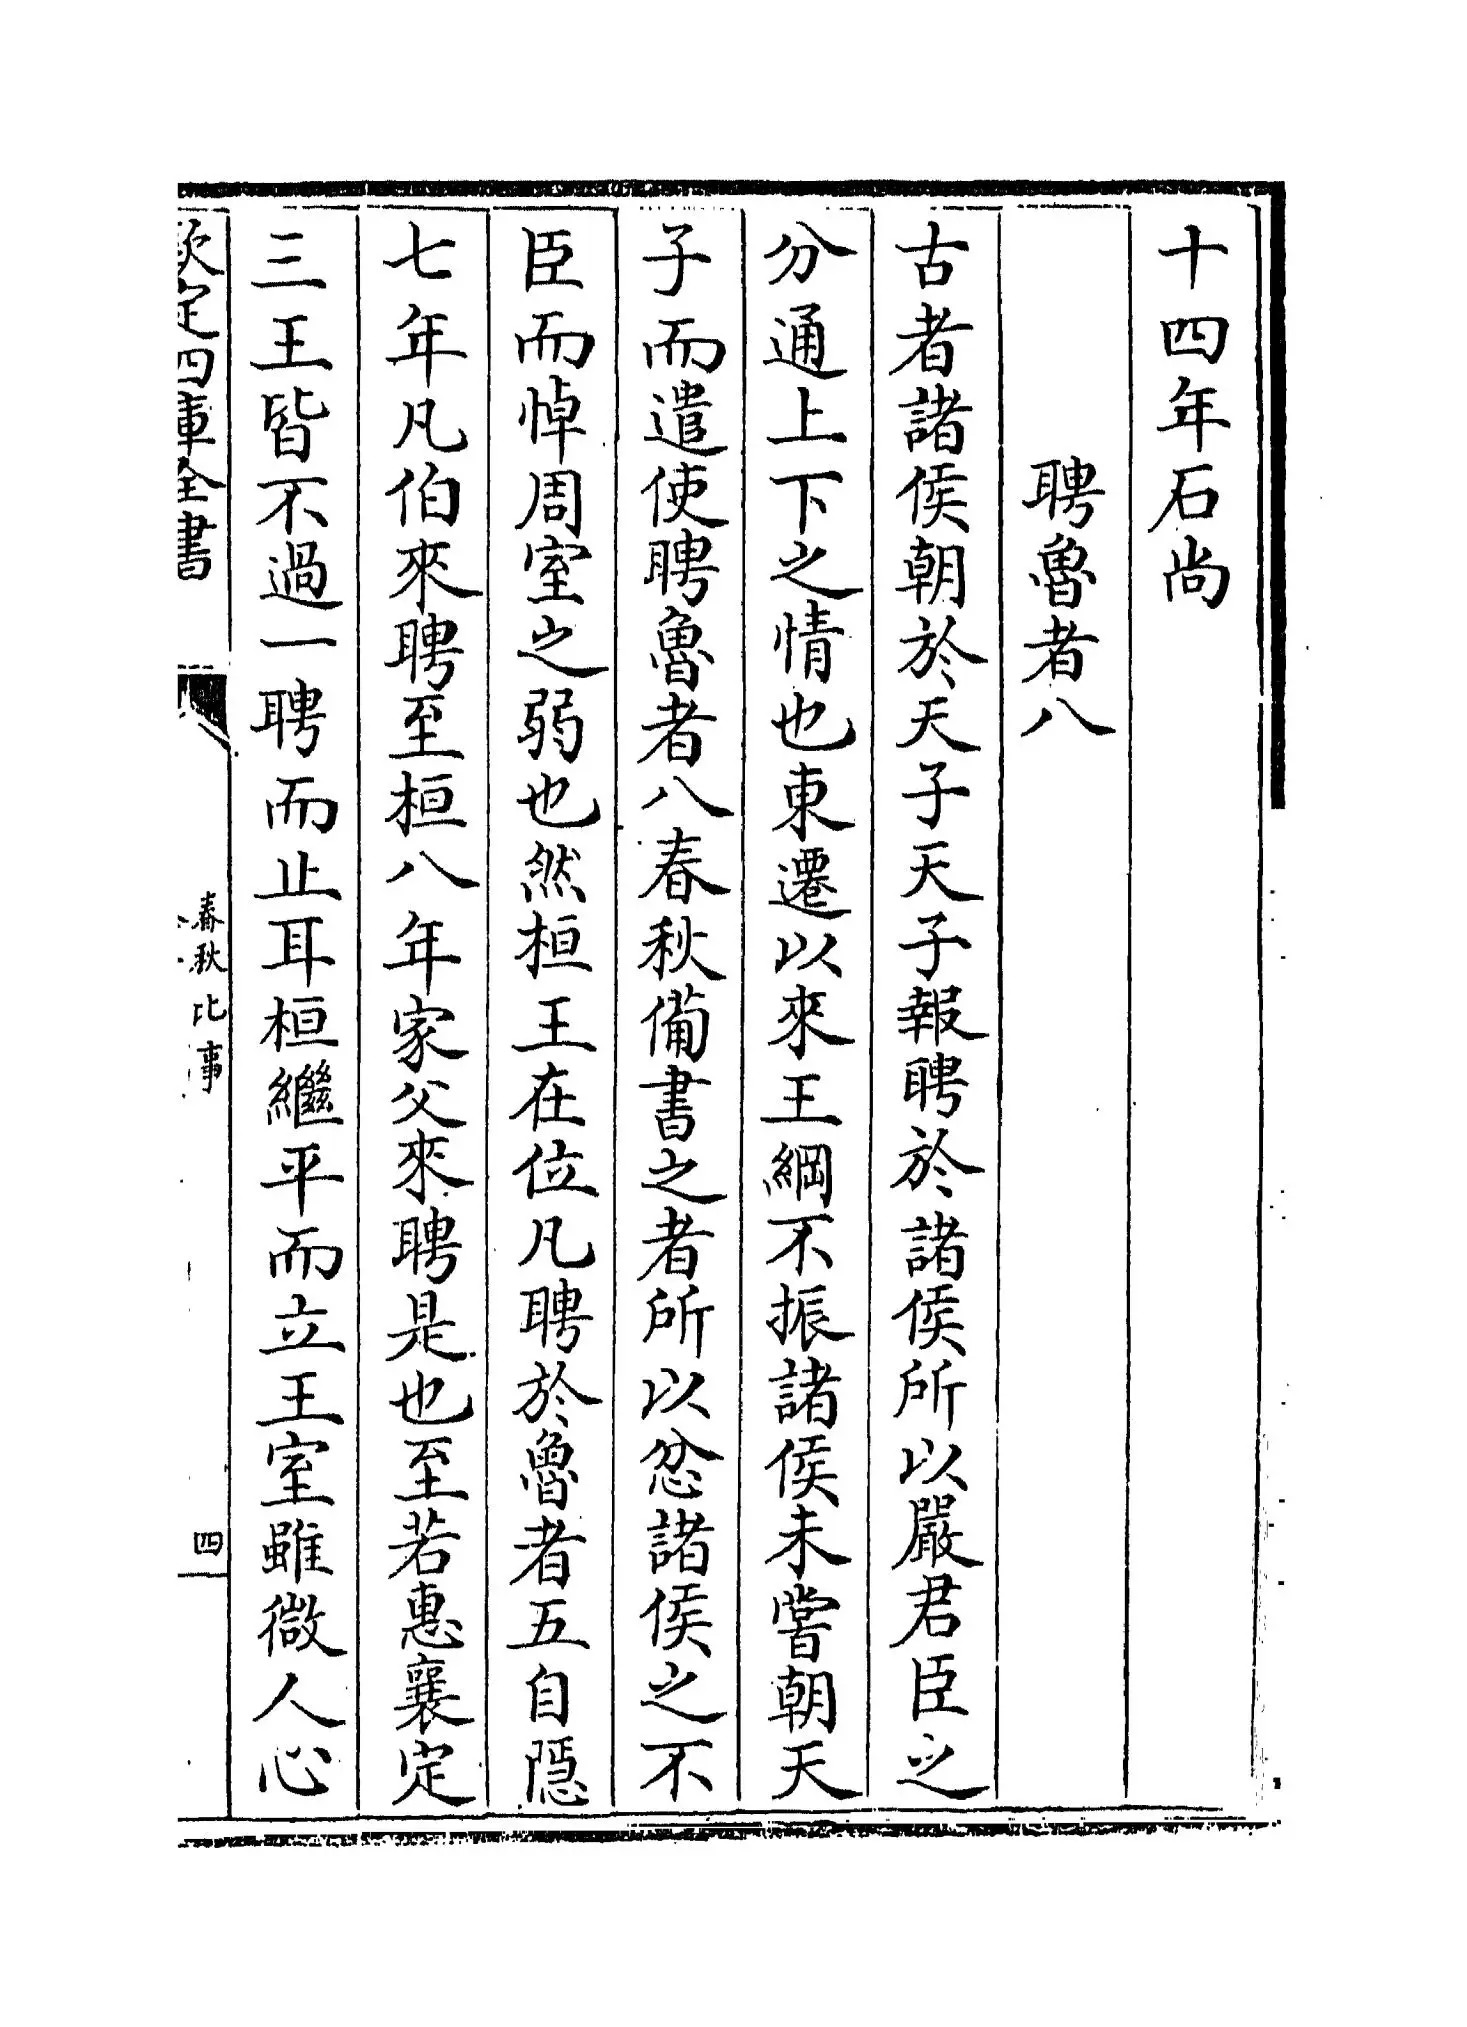 十四年石尚
聘魯者八
古者諸侯朝於天子天子報聘於諸侯所以嚴君臣之
分通上下之情也東遷以來王綱不振諸侯未嘗朝天
子而遣使聘魯者八春秋備書之者所以忿諸侯之不
臣而悼周室之弱也然桓王在位凡聘於魯者五自隱
七年凡伯來聘至桓八年家父來聘是也至若惠襄定
三王皆不過一聘而止耳桓繼平而立王室雖微人心
欽定四庫全書
春秋比事
四